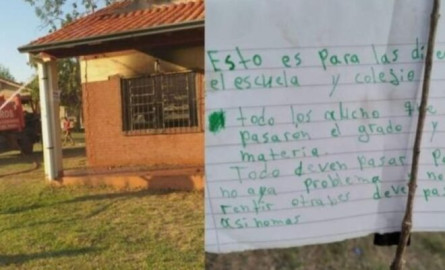 Esto es para las di
el escuela y colesio
todo los alicho que
pasaron el grado y
materia.
Todo deven pasar P
no aya Problema no
rentir otrabes deve po
asi nomas